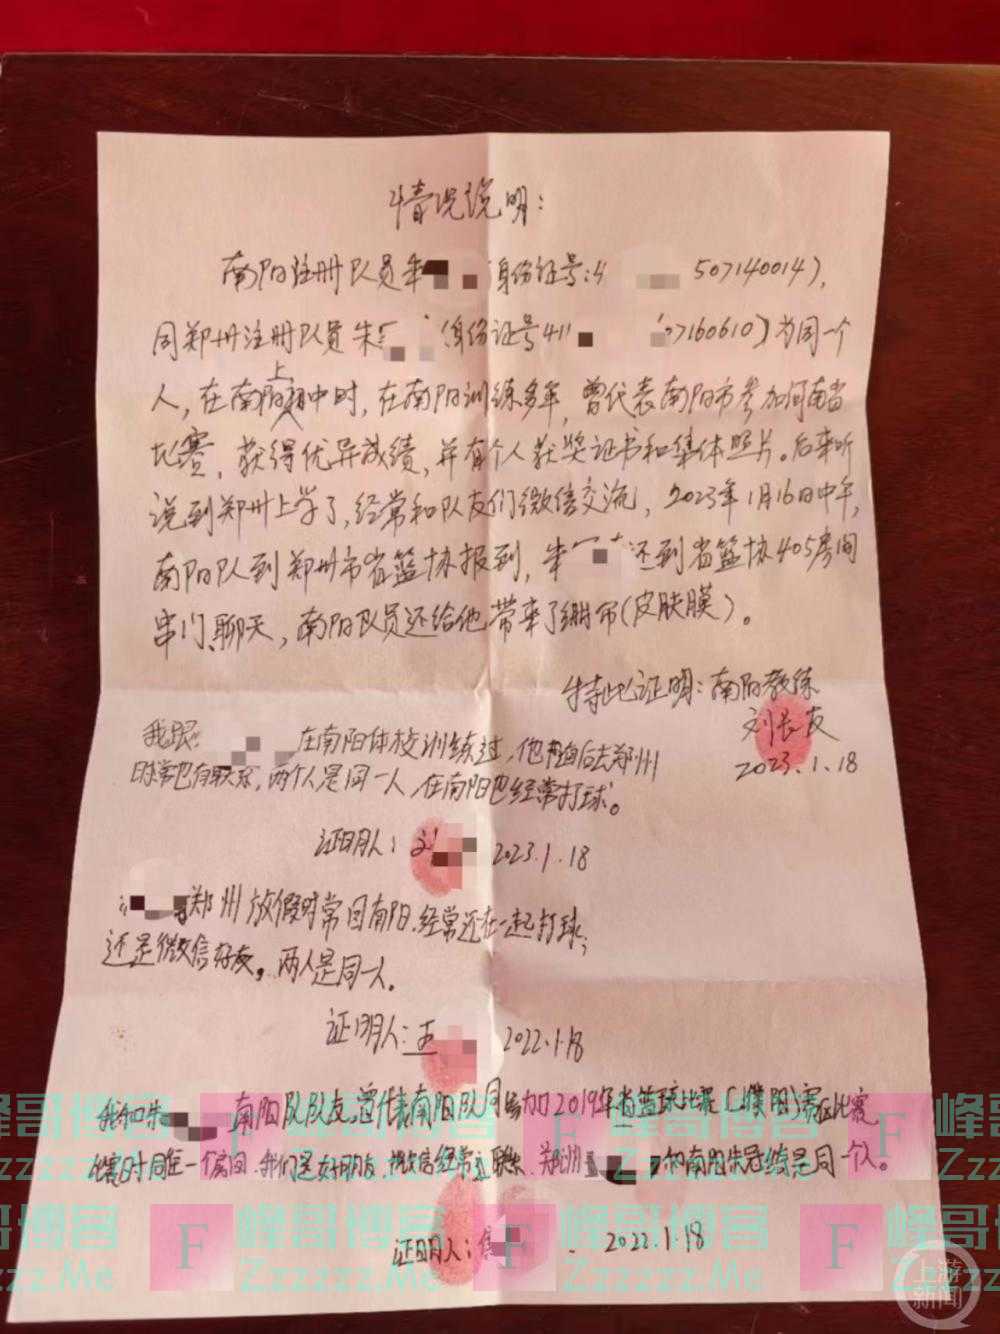 情况说明：
南阳注册队员朱 身份证号:4 507140014），
同郑州注册队员朱 （身份证号411 07160610）为同一个
人，在南阳上初中时，在南阳训练多年，曾代表南阳市参加河南省
比赛，获得优异成绩，并有个人获奖证书和集体照片。后来听
说到郑州上学了，经常和队友们微信交流，2023年1月16日中午，
南阳队到郑州市省篮协报到，朱 还到省篮协405房间
串门聊天，南阳队员还给他带来了绷布（皮肤膜）。
特此证明：南阳教练
刘长友
2023.1.18
我跟 在南阳体校训练过，他 自后去郑州
时常也有联系，两个人是同一人，在南阳也经常打球。
证明人：刘 2023.1.18
郑州放假时常回南阳，经常还在一起打球，
还是微信好友。两人是同一人。
证明人：王 2022.1.18
我和朱 南阳队队友，曾代表南阳队同参加2019年省篮球比赛（濮阳）赛区比赛
比赛时同住一个房间，我们是好朋友，微信经常 联系，郑州 和南阳朱 是同一个人。
证明人： 2022.1.18
峰哥博客
Zzzzzz.Me
F
峰哥博客
Zzzzzz.Me
F
峰哥博客
Zzzzzz.Me
F
峰哥博客
Zzzzzz.Me
上游新闻